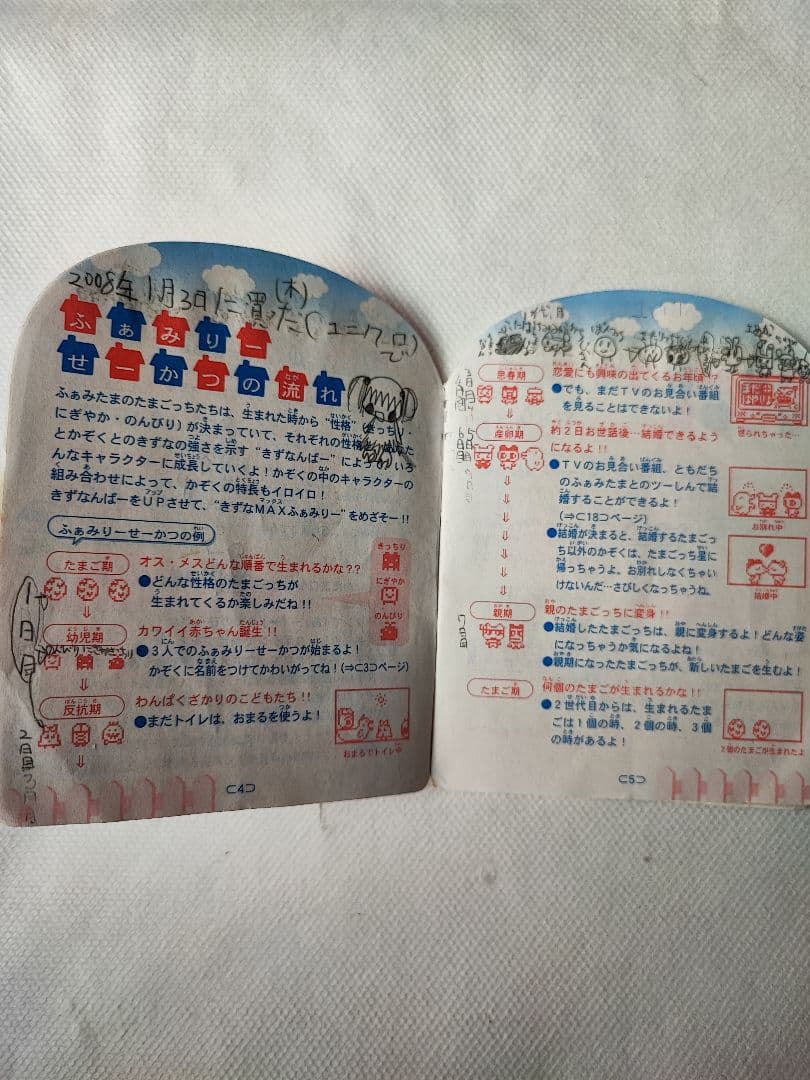 2008年1月3日に買った(ユニクロで
(木)
ふぁみりー
せーかつの流れ
ふぁみたまのたまごっちたちは、生まれた時から“性格”
にぎやか・のんびり)が決まっていて、それぞれの性格
とかぞくとのきずなの強さを示す“きずなんばー”によっていろ
んなキャラクターに成長していくよ！かぞくの中のキャラクターの
組み合わせによって、かぞくの特長もイロイロ！
きずなんばーをＵＰさせて、“きずなＭＡＸふぁみりー”をめざそー!!
ふぁみりーせーかつの例
たまご期
オス・メスどんな順番で生まれるかな??
●どんな性格のたまごっちが
生まれてくるか楽しみだね!!
きっちり
にぎやか
のんびり
1日目
幼児期
カワイイ赤ちゃん誕生!!
●３人でのふぁみりーせーかつが始まるよ！
かぞくに名前をつけてかわいがってね！(⇒⊂3⊃ページ)
反抗期
わんぱくざかりのこどもたち!!
●まだトイレは、おまるを使うよ！
おまるでトイレ中
2日目
⊂4⊃
思春期
恋愛にも興味の出てくるお年頃!?
●でも、まだＴＶのお見合い番組
を見ることはできないよ！
怒られちゃった…
産卵期
約２日お世話後…結婚できるよう
になるよ!!
●ＴＶのお見合い番組、ともだち
のふぁみたまとのツーしんで結
婚することができるよ！
(⇒⊂18⊃ページ)
お別れ中
●結婚が決まると、結婚するたまご
っち以外のかぞくは、たまごっち星に
帰っちゃうよ。お別れしなくちゃい
けないんだ…さびしくなっちゃうね。
結婚中
7日目
親期
親のたまごっちに変身!!
●結婚したたまごっちは、親に変身するよ！どんな姿
になっちゃうか気になるよね！
●親期になったたまごっちが、新しいたまごを生むよ！
たまご期
何個のたまごが生まれるかな!!
●２世代目からは、生まれるたま
ごは１個の時、２個の時、３個
の時があるよ！
２個のたまごが生まれたよ
⊂5⊃